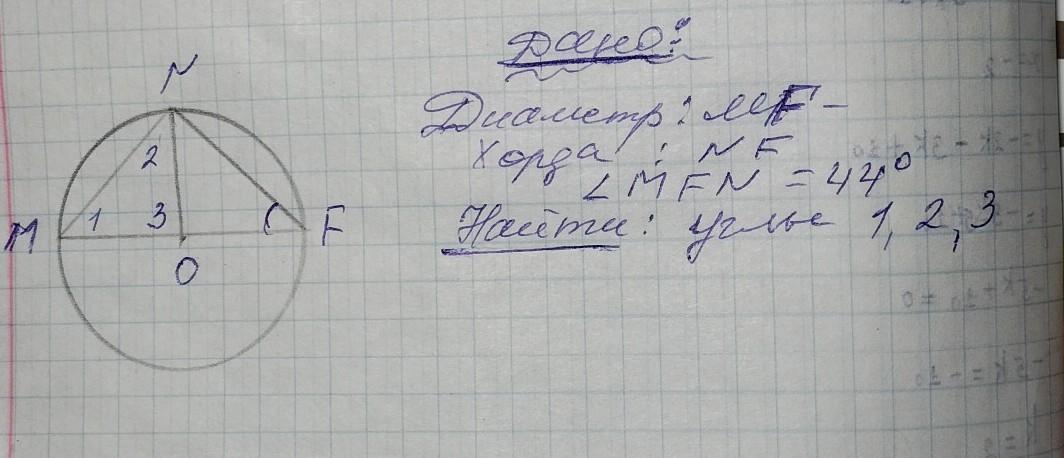 Дано:
Диаметр: MF -
Хорда : NF
∠MFN = 44°
Найти: углы 1, 2, 3
N
2
M 1 3 F
O